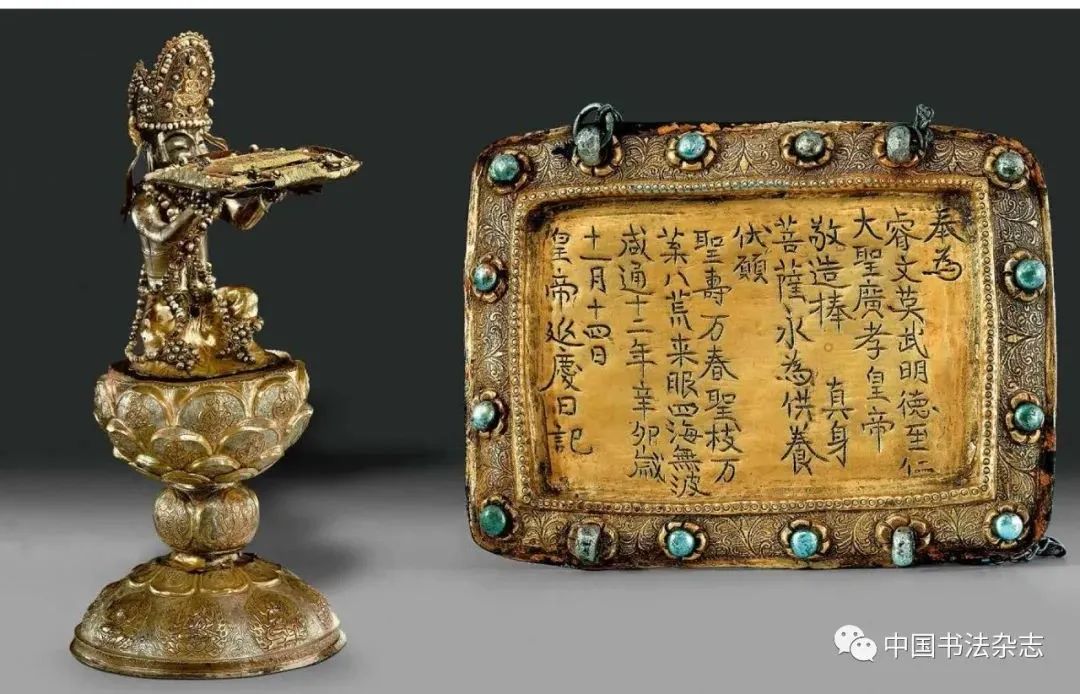 奉為
睿文英武明德至仁
大聖廣孝皇帝
敬造捧真身
菩薩永為供養
伏願
聖壽万春聖枝万
葉八荒来服四海無波
咸通十二年辛卯歲
十一月十四日
皇帝延慶日記
中国书法杂志